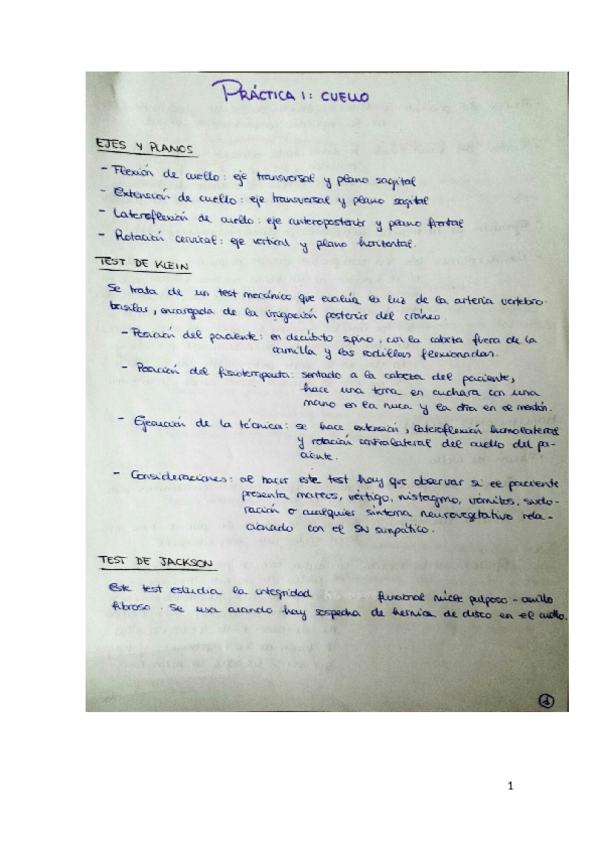 PRÁCTICA 1: CUELLO
EJES Y PLANOS
- Flexión de cuello: eje transversal y plano sagital
- Extensión de cuello: eje transversal y plano sagital
- Lateroflexión de cuello: eje anteroposterior y plano frontal
- Rotación cervical: eje vertical y plano horizontal.
TEST DE KLEIN
Se trata de un test mecánico que evalúa la luz de la arteria vertebro-
basilar, encargada de la irrigación posterior del cráneo
- Posición del paciente: en decúbito supino, con la cabeza fuera de la
camilla y las rodillas flexionadas.
- Posición del fisioterapeuta: sentado a la cabeza del paciente,
hace una toma en cuchara con una
mano en la nuca y la otra en el mentón.
- Ejecución de la técnica: se hace extensión, lateroflexión homolateral
y rotación contralateral del cuello del pa-
ciente.
- Consideraciones: al hacer este test hay que observar si el paciente
presenta mareos, vértigo, nistagmo, vómitos, sudo-
ración o cualquier síntoma neurovegetativo rela-
cionado con el SN simpático.
TEST DE JACKSON
Este test estudia la integridad funcional núcleo pulposo - anillo
fibroso. Se usa cuando hay sospecha de hernia de disco en el cuello.
1
1